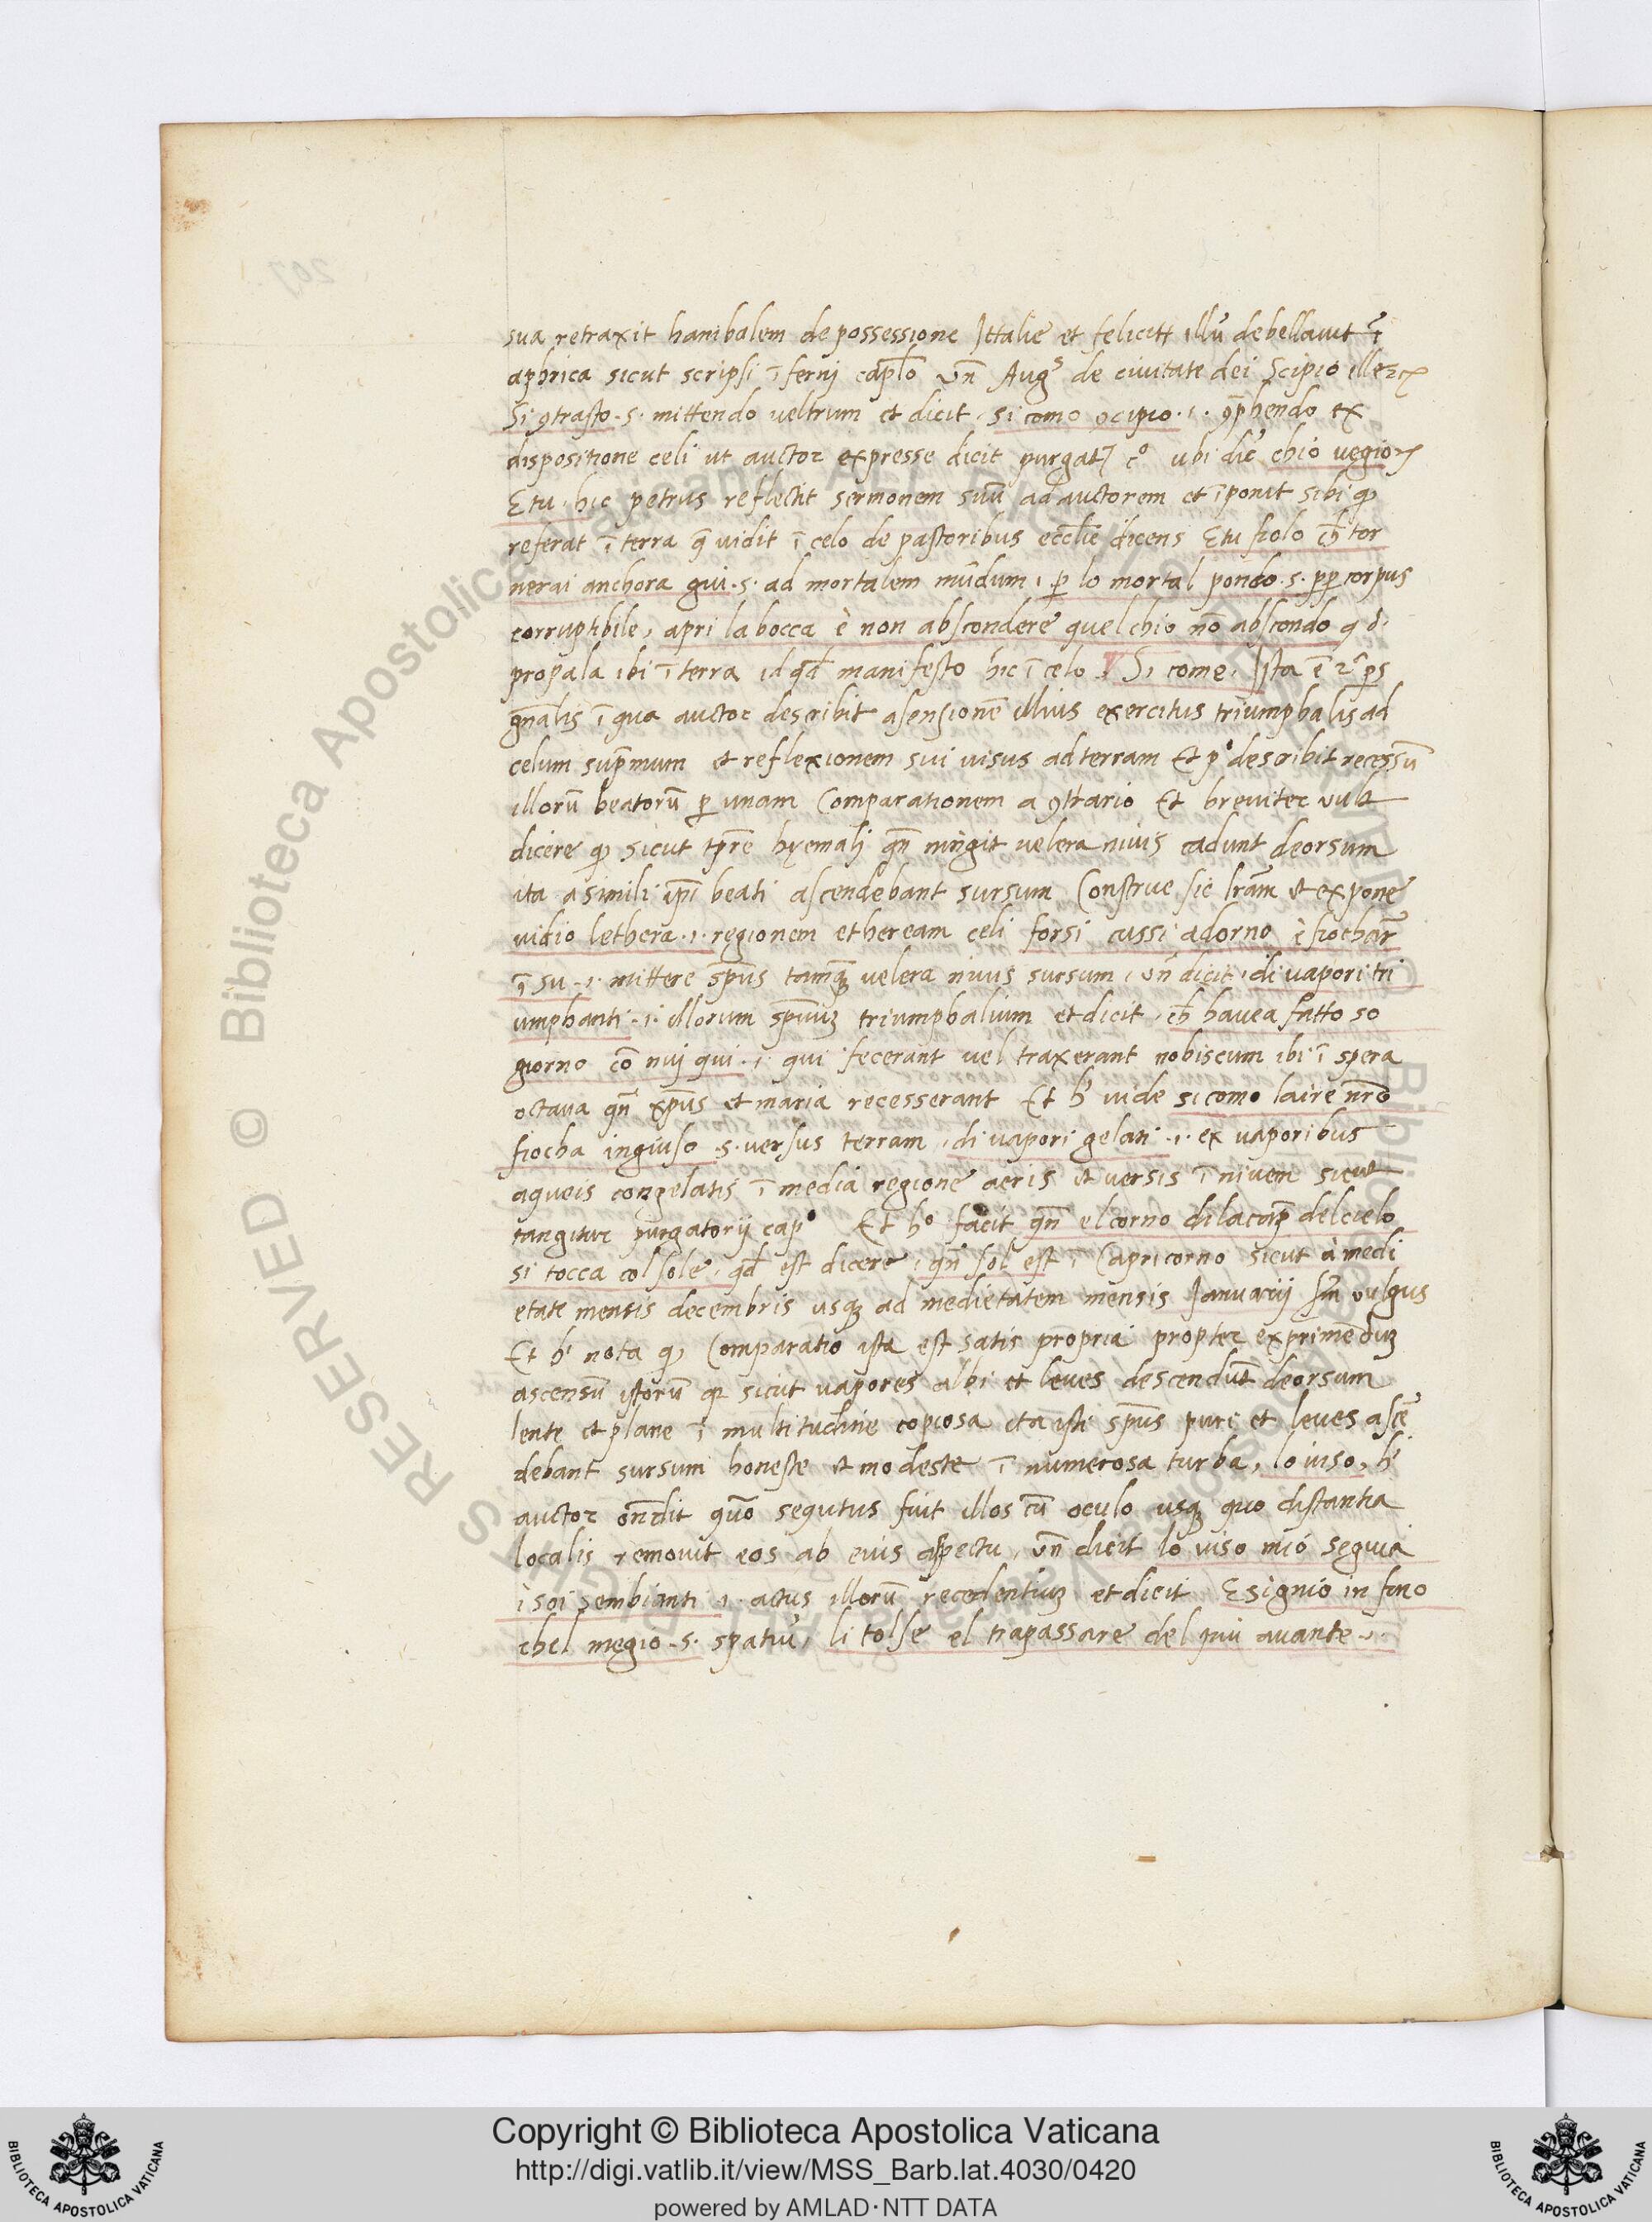 sua retraxit hanibalem de possessione Ittalie et felicitt illũ debellauit ĩ
aphrica sicut scripsi ĩferni caplo Vñ Aug de ciuitate dei Scipio ille
Si ꝯtrasto .s. mittendo veltrum et dicit, si como ꝯcipio .i. ꝯp̃hendo ex
dispositione celi ut auctor expresse dicit purgat cº ubi dic̃ chio vegio
Etu, hic petrus reflectit sermonem suũ ad auctorem et ĩponit sibi ꝙ
referat ĩ terra q̃ vidit ĩ celo de pastoribus eccl̃ie dicens Etu fiolo ch̃ tor
nerai anchora gui .s. ad mortalem mũdum, ꝑ lo mortal pondo .s. ꝓpꝑ corpus
corruptibile, apri la bocca è non abscondere quel chio nõ abscondo q d.
propala ibi ĩ terra id qd̃ manifesto hic ĩ celo Si come, Ista ẽ 2ª ps
gñalis ĩ qua auctor describit asensionẽ illius exercitus triumphalis ad
celum sup̃mum et reflexionem sui visus ad terram Et pº describit recessũ
illorũ beatorũ ꝑ unam Comparationem a ꝯtrario Et breuiter vult
dicere ꝙ sicut tp̃re hyemalj qñ ningit velera niuis cadunt deorsum
ita a simili ip̃i beati ascendebant sursum Construe sic lr̃am et expone
vidio lethera .i. regionem etheream celi forsi cussi adorno è fiochar
ĩ su .i. mittere sp̃us tamꝗ velera niuis sursum, vñ dicit, di vapori tri
umphanti .i. illorum sp̃iuũ triumphalium et dicit, ch̃ hauea fatto so
giorno cõ nuj qui .i. qui fecerant vel traxerant nobiscum ibi ĩ spera
octaua qñ xp̃us et maria recesserant Et h̃ vide si como laire nr̃o
fiocha ingiuso .s. versus terram, di vapori gelati .i. ex vaporibus
aqueis congelatis ĩ media regione aeris et versis ĩ niuem sicut
tangitur purgatorij capº Et hº facit qñ el corno dila cap̃ del cielo
si tocca col sole, qd̃ est dicere, qñ sol est ĩ Capricorno sicut à medi
etate mensis decembris usqꝫ ad medietatem mensis Januarij sm̃ vulgus
Et h̃ nota ꝙ Comparatio ista est satis propria propter exprimẽduꝫ
ascensũ istorũ qꝛ sicut vapores albi et leues descendũt deorsum
lente et plane ĩ multitudine copiosa ita isti sp̃us puri et leues ascẽ
debant sursum honeste et modeste ĩ numerosa turba, lo viso, h̃
auctor oñdit quõ segutus fuit illos cũ oculo usqꝫ quo distantia
localis remouit eos ab eius aspectu, vñ dicit lo viso mió seguia
i soi sembianti .i. actus illorũ recedentiuꝫ et dicit E signió in fino
chel megio .s. spatiũ, li tolse el trapassare del piu auante .,.
Copyright © Biblioteca Apostolica Vaticana
http://digi.vatlib.it/view/MSS_Barb.lat.4030/0420
powered by AMLAD·NTT DATA
BIBLIOTECA APOSTOLICA VATICANA
BIBLIOTECA APOSTOLICA VATICANA